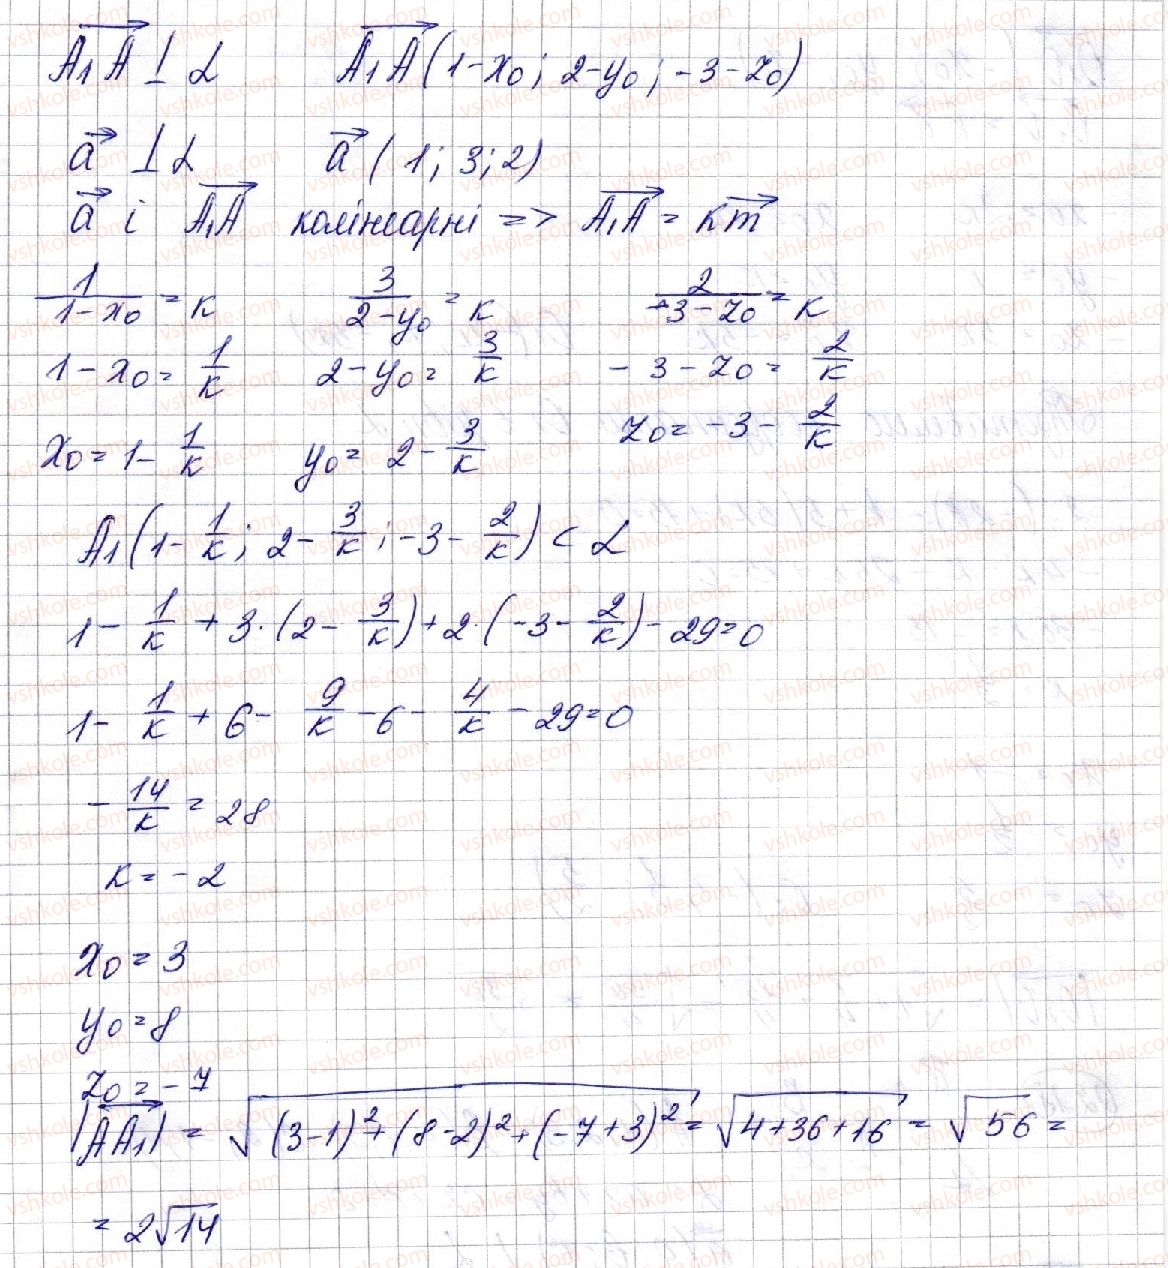 A₁A⃗ ⊥ α A₁A⃗ (1-x₀; 2-y₀; -3-z₀)
a⃗ ⊥ α a⃗ (1; 3; 2)
a⃗ і A₁A⃗ колінеарні => A₁A⃗ = km⃗
1/(1-x₀) = k 3/(2-y₀) = k 2/(-3-z₀) = k
1-x₀ = 1/k 2-y₀ = 3/k -3-z₀ = 2/k
x₀ = 1 - 1/k y₀ = 2 - 3/k z₀ = -3 - 2/k
A₁(1 - 1/k; 2 - 3/k; -3 - 2/k) ⊂ α
1 - 1/k + 3·(2 - 3/k) + 2·(-3 - 2/k) - 29 = 0
1 - 1/k + 6 - 9/k - 6 - 4/k - 29 = 0
- 14/k = 28
k = -2
x₀ = 3
y₀ = 8
z₀ = -7
|AA₁⃗| = √((3-1)² + (8-2)² + (-7+3)²) = √(4+36+16) = √56 =
= 2√14